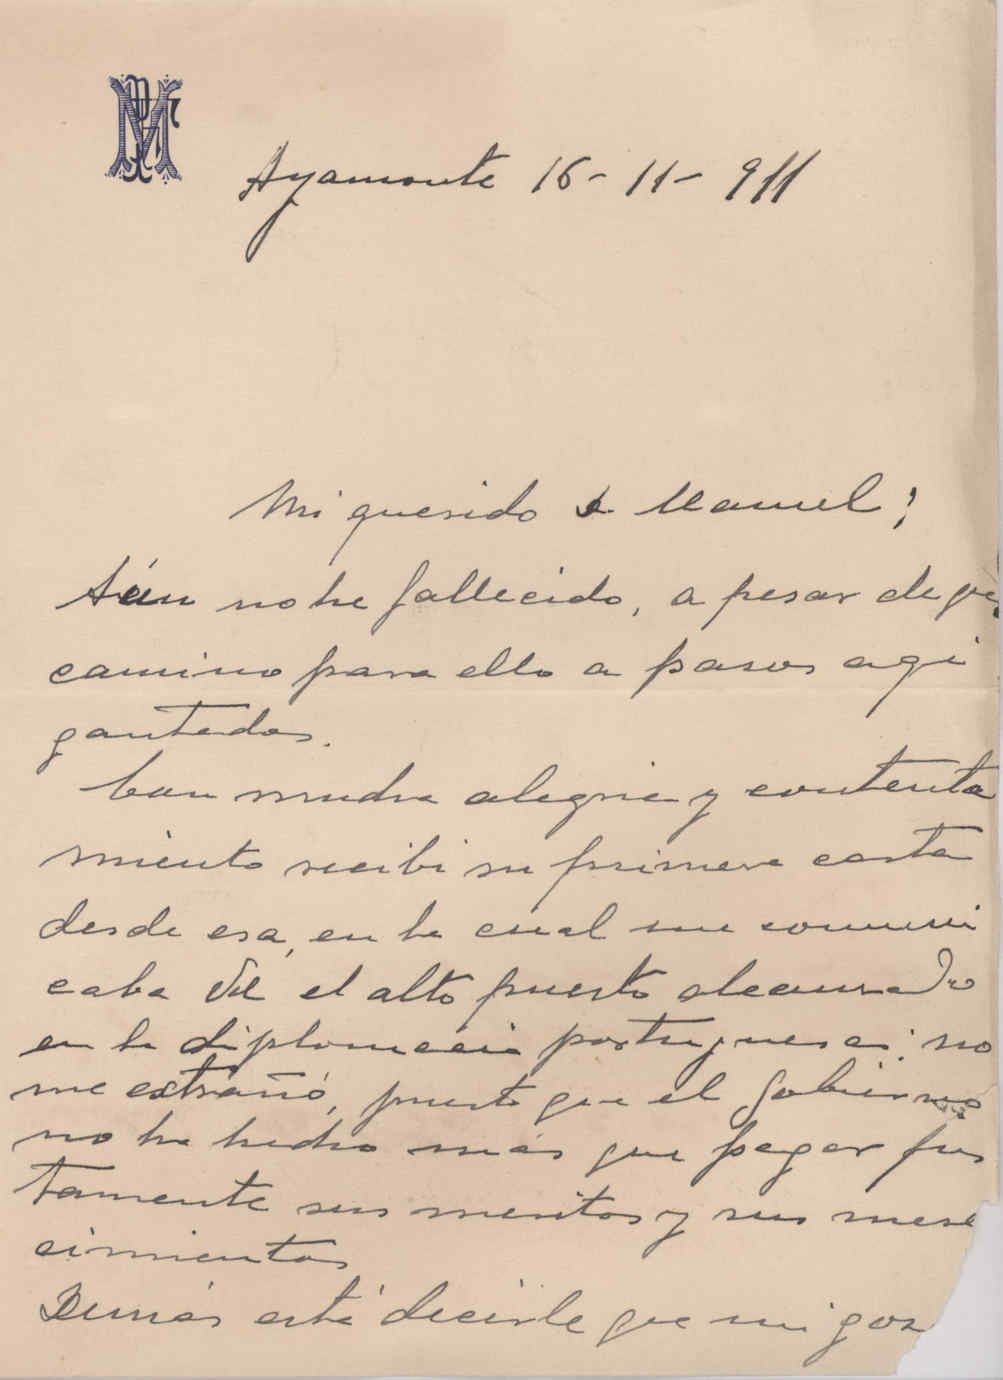 Ayamonte 16-11-911
Mi querido Manuel;
Aún no he fallecido, a pesar de que
camino para ello a pasos agi
gantados.
Con mucha alegria y contenta
miento recibi su primera carta
desde esa, en la cual me comuni
caba Vd el alto puesto alcanzado
en la diplomacia portuguesa; no
me extrañó, puesto que el Gobierno
no ha hecho más que pagar jus
tamente sus meritos y sus mere
cimientos
Demás está decirle que mi goz